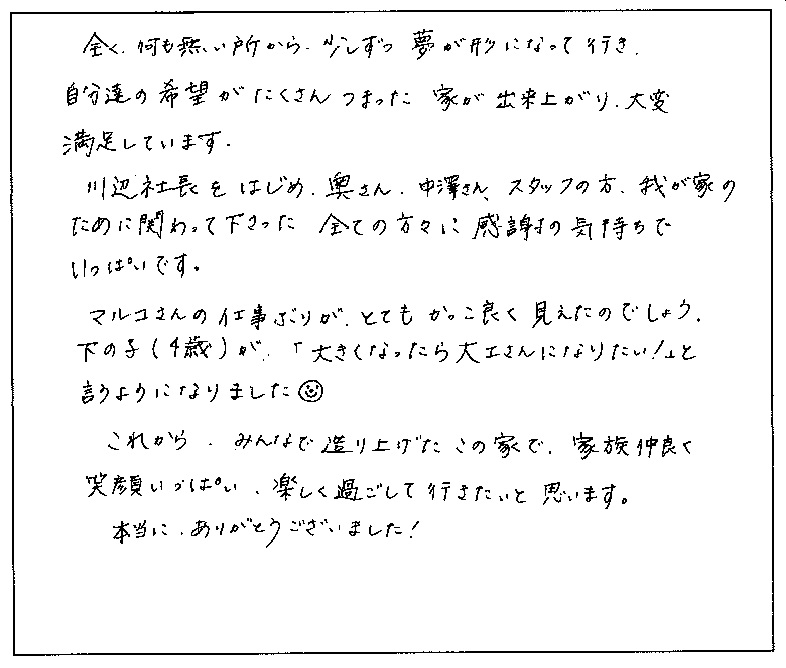 全く、何も無い所から、少しずつ夢が形になって行き、
自分達の希望がたくさんつまった家が出来上がり、大変
満足しています。
川辺社長をはじめ、奥さん、中澤さん、スタッフの方、我が家の
ために関わって下さった全ての方々に感謝の気持ちで
いっぱいです。
マルコさんの仕事ぶりが、とてもかっこ良く見えたのでしょう、
下の子(4歳)が、「大きくなったら大工さんになりたい!」と
言うようになりました☺
これから、みんなで造り上げたこの家で、家族仲良く
笑顔いっぱい、楽しく過ごして行きたいと思います。
本当に、ありがとうございました!